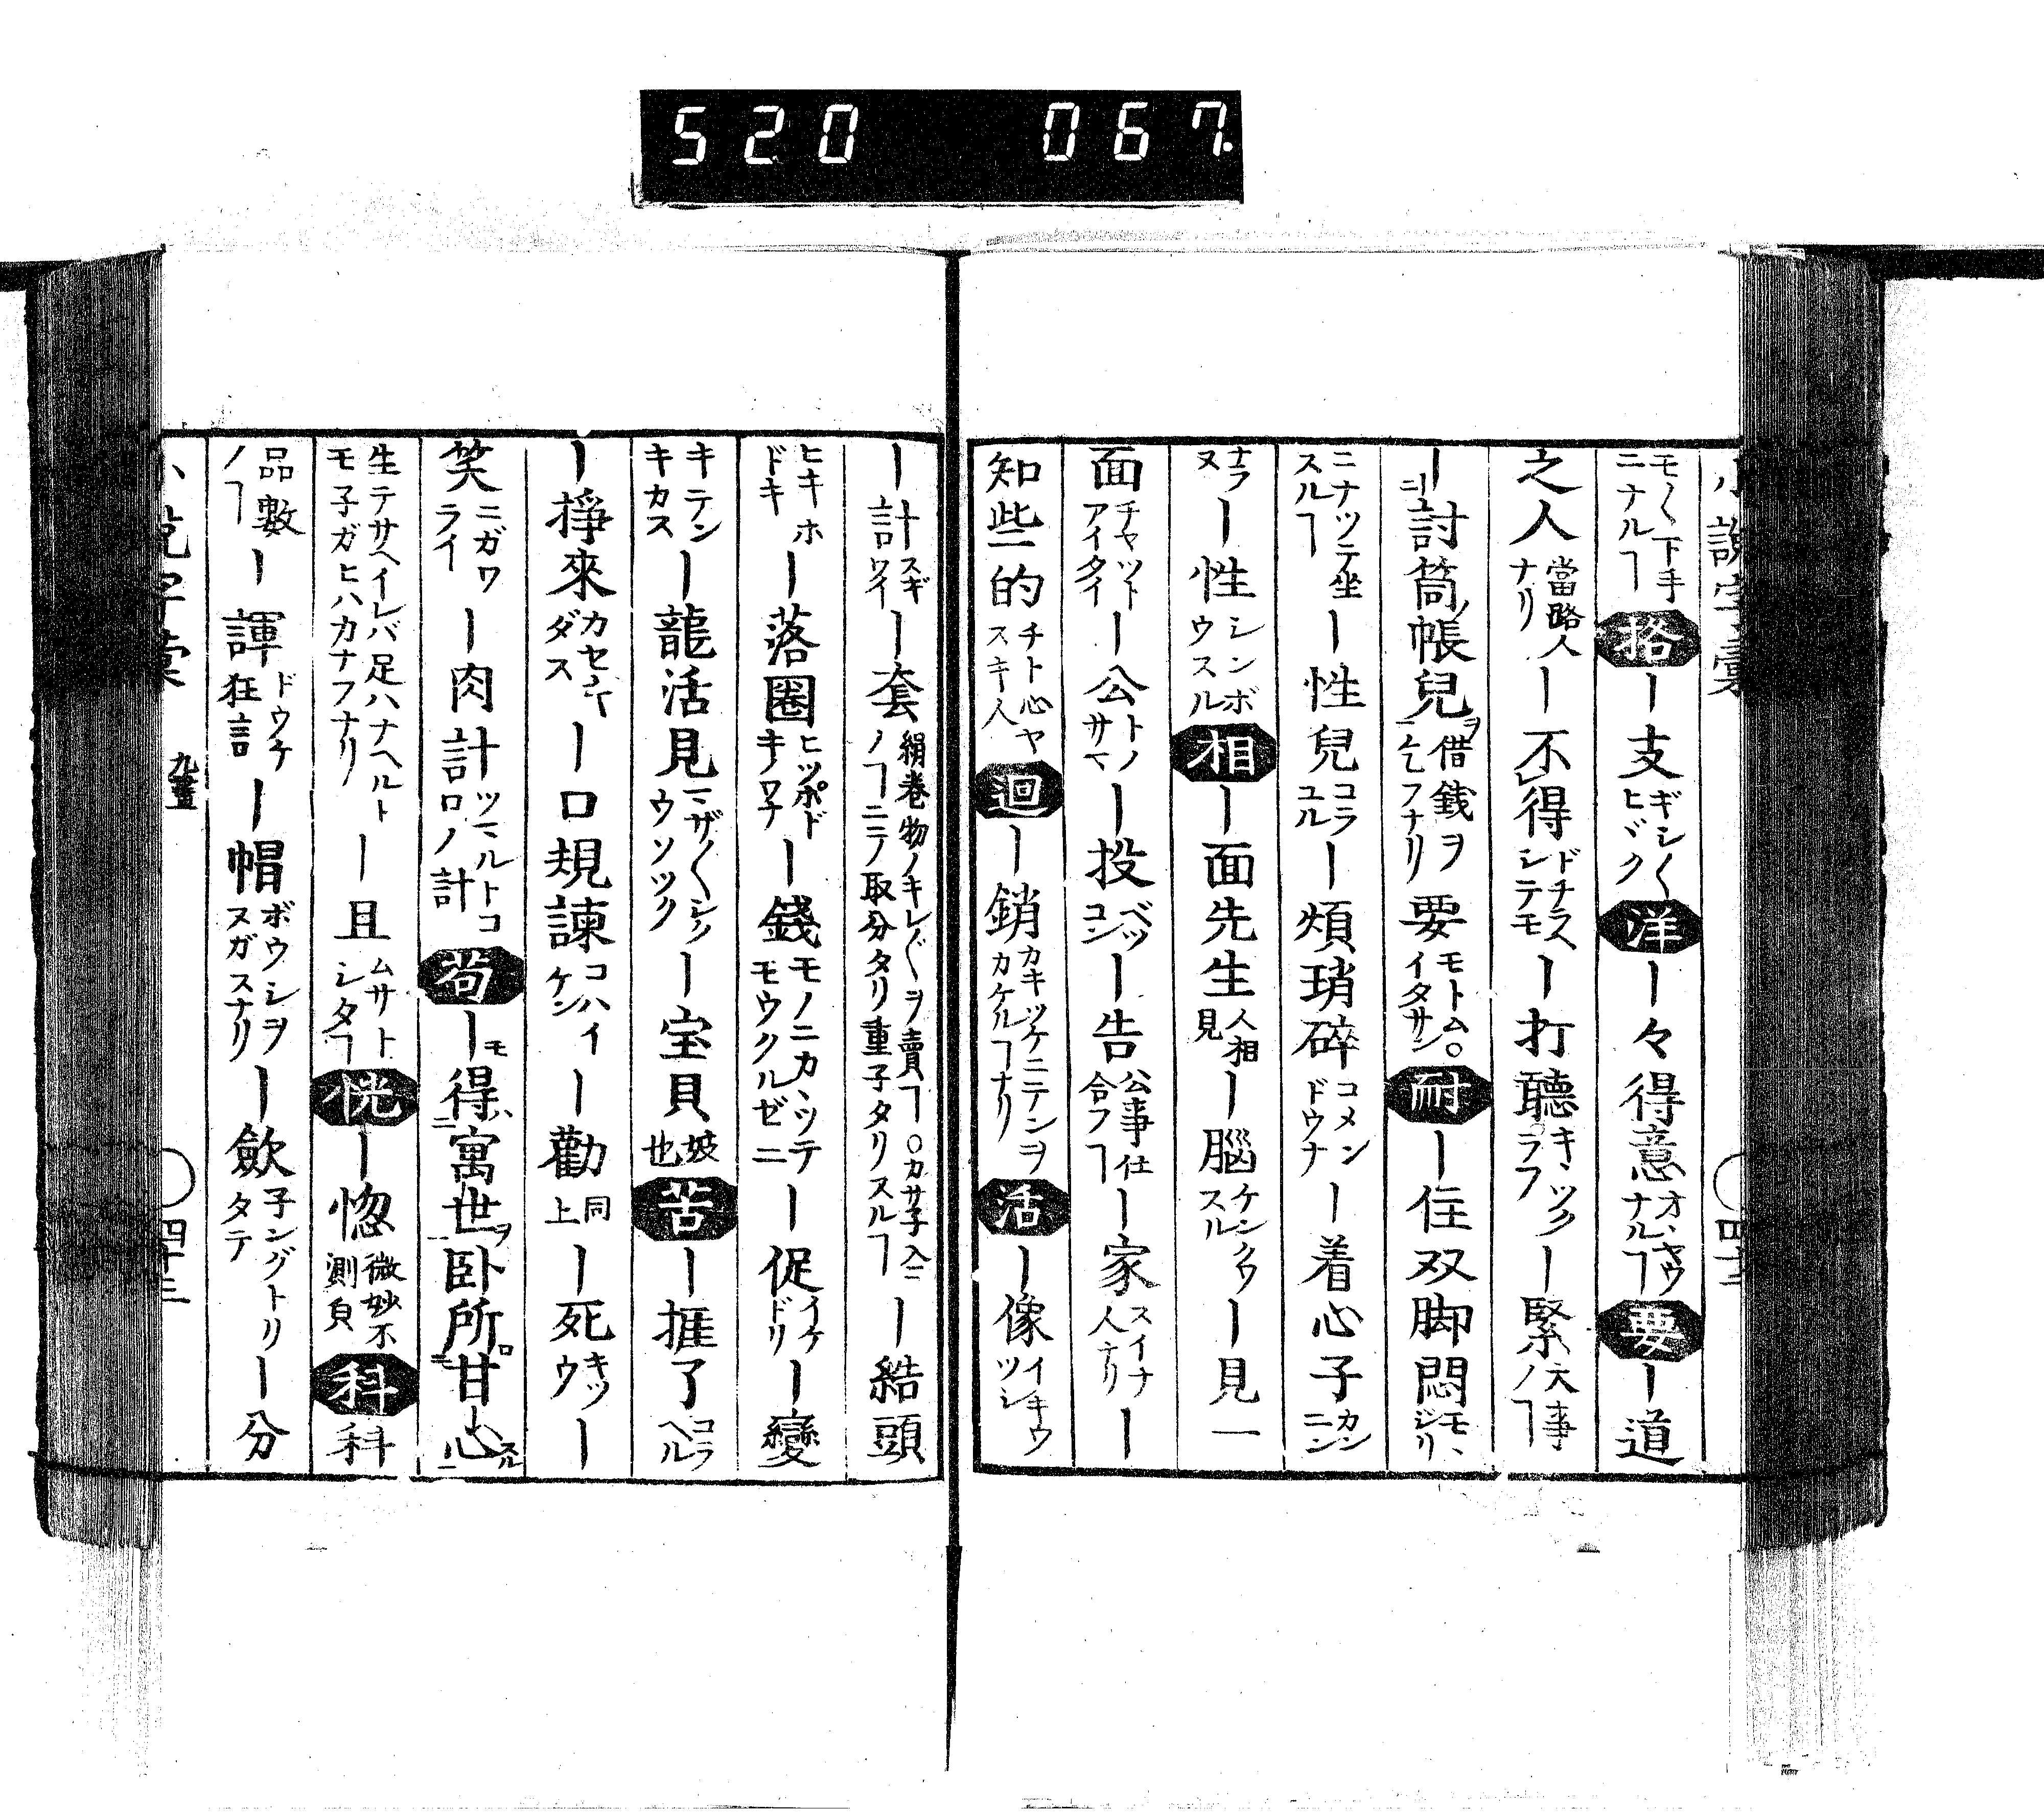 520 067.
小說字彙
モ〱下手ニナルヿ 拾 ー支 ギシ〱ヒビク 洋 ー々得意 オヽギウナルヿ 要 ー道
之人 當路人ナリ ー不得 ドチラヘシテモ ー打聽 キヽツクラフ ー緊 大事ノヿ
ー討筒帳兒 借錢ヲコフナリ 要 モトムイタサン。 耐 ー住双脚悶 モヽジリ
ニナツテ坐スルヿ ー性兒 コラユル ー煩瑣碎 コメンドウナ ー着心子 カンニン
ナラヌ ー性 シンボウスル 相 ー面先生 人相見 ー腦 ケンクワスル ー見一
面 チヤツトアイタイ ー公 トノサマ ー投 ベツコン ー告 公事仕合フヿ ー家 スイナ人ナリ ー
知些的 チト心ヤスキ人 迴 ー銷 カキツケニテンヲカケルヿナリ 活 ー像 イキウツシ
ー計 スギワイ ー套 絹巻物ノキレ〲ヲ賣ヿ○カサ子入ノヿニテ取分タリ重子タリスルヿ ー結頭
ヒキホドキ ー落圈 ヒツポドキワ子 ー錢 モノニカヽツテモウクルゼニ ー促 イケドリ ー變
キテンキカス ー龍活見 マザ〱シクウソツク ー宝貝 妓也 苦 ー捱了 コラヘル
ー掙來 カセイデダス ー口規諫 コハイケン ー勸 同上 ー死 キツウ ー
笑 ニガワライ ー肉計 ツマルトコロノ計 茍 ー得寓世卧所甘心
生テサヘイレバ足ハナヘルトモ子ガヒハカナフナリ ー且 ムサトシタヿ 恍 ー惚 微妙不測皃 科 科
品數ノヿ ー諢 ドウケ狂言 ー帽 ボウシヲヌガスナリ ー歛 子ングトリタテ ー分
小說字彙 九畫 四十三